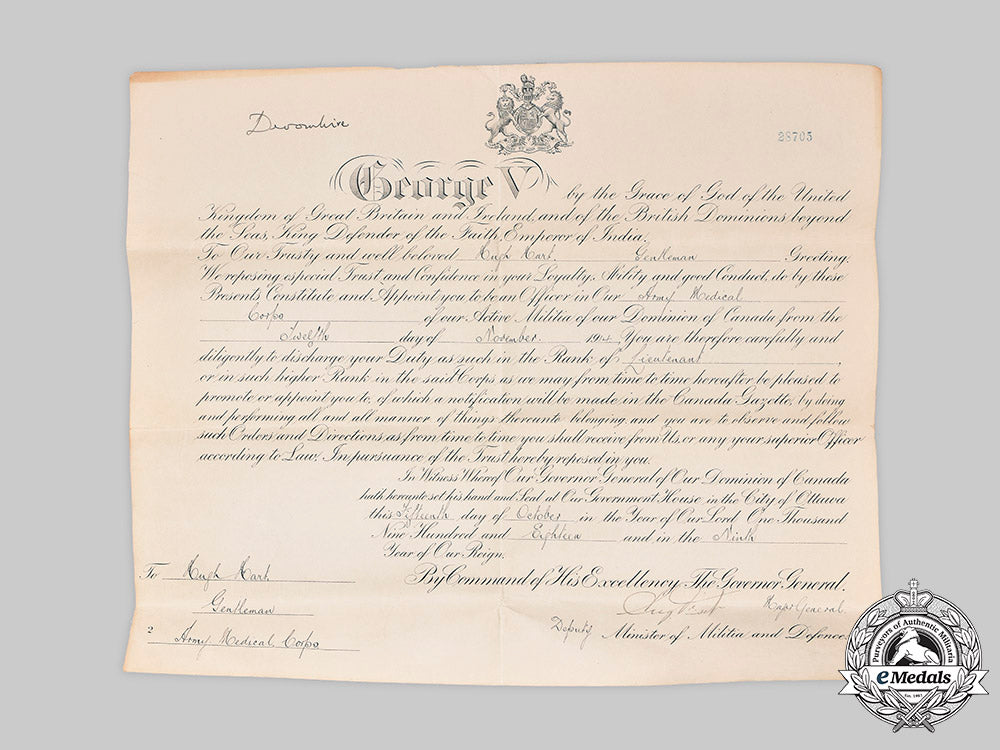 Devonshire
28705
George V by the Grace of God of the United
Kingdom of Great Britain and Ireland, and of the British Dominions beyond
the Seas, King Defender of the Faith, Emperor of India.
To Our Trusty and well beloved Hugh Hart Gentleman Greeting:
We reposing especial Trust and Confidence in your Loyalty, Ability and good Conduct, do by these
Presents Constitute and Appoint you to be an Officer in Our Army Medical
Corps of our Active Militia of our Dominion of Canada from the
Twelfth day of November 1914 You are therefore carefully and
diligently to discharge your Duty as such in the Rank of Lieutenant,
or in such higher Rank in the said Corps as we may from time to time hereafter be pleased to
promote or appoint you to, of which a notification will be made in the Canada Gazette, by doing
and performing all and all manner of things thereunto belonging, and you are to observe and follow
such Orders and Directions as from time to time you shall receive from Us, or any your superior Officer
according to Law. In pursuance of the Trust hereby reposed in you.
In Witness Whereof Our Governor General of Our Dominion of Canada
hath hereunto set his hand and Seal at Our Government House in the City of Ottawa
this Fifteenth day of October in the Year of Our Lord, One Thousand
Nine Hundred and Eighteen and in the Ninth
Year of Our Reign.
By Command of His Excellency The Governor General.
Major General
Deputy Minister of Militia and Defence
To Hugh Hart
Gentleman
2 Army Medical Corps
Purveyors of Authentic Militaria
eMedals